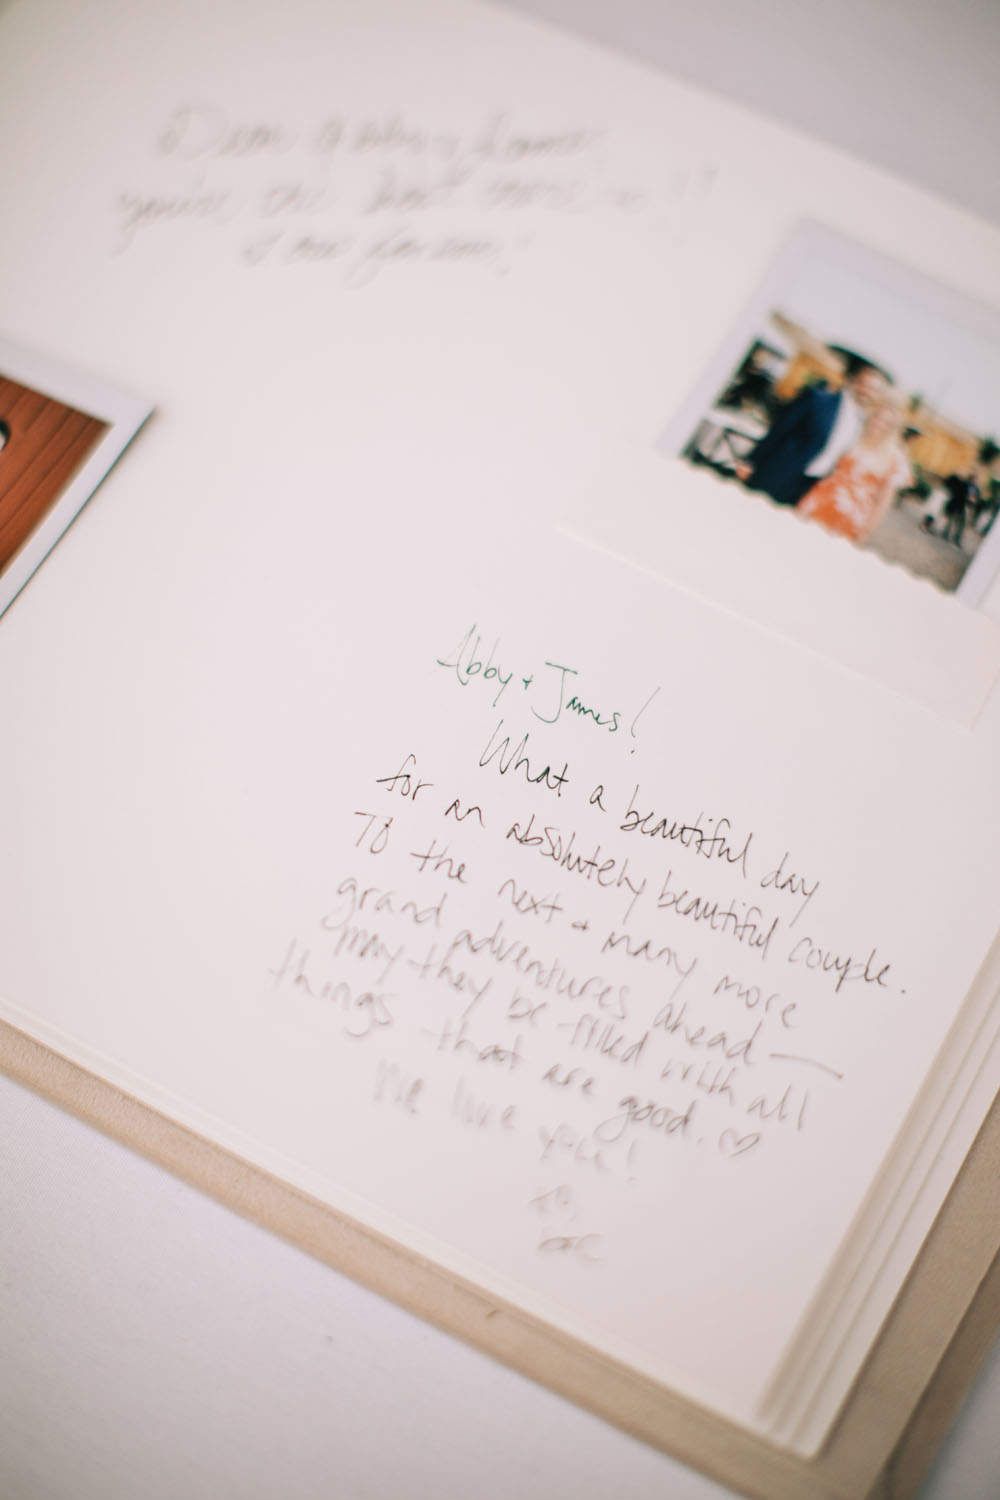 Dear
you're the best
Abby + James!
What a beautiful day
for an absolutely beautiful couple.
To the next + many more
grand adventures ahead —
may they be filled with all
things that are good. ♡
We love you!